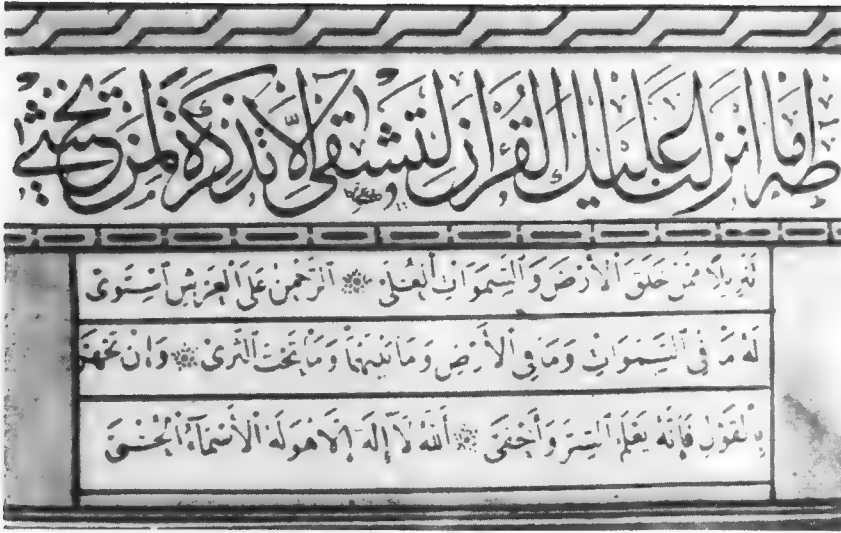 طه ما انزلنا عليك القرآن لتشقى الا تذكرة لمن يخشى
تَنْزِيلًا مِمَّنْ خَلَقَ ٱلْأَرْضَ وَٱلسَّمَوَاتِ ٱلْعُلَى ٱلرَّحْمٰنُ عَلَى ٱلْعَرْشِ ٱسْتَوَى
لَهُ مَا فِي ٱلسَّمَوَاتِ وَمَا فِي ٱلْأَرْضِ وَمَا بَيْنَهُمَا وَمَا تَحْتَ ٱلثَّرَى وَإِنْ تَجْهَرْ
بِٱلْقَوْلِ فَإِنَّهُ يَعْلَمُ ٱلسِّرَّ وَأَخْفَى ٱللَّهُ لَا إِلَهَ إِلَّا هُوَ لَهُ ٱلْأَسْمَاءُ ٱلْحُسْنَى